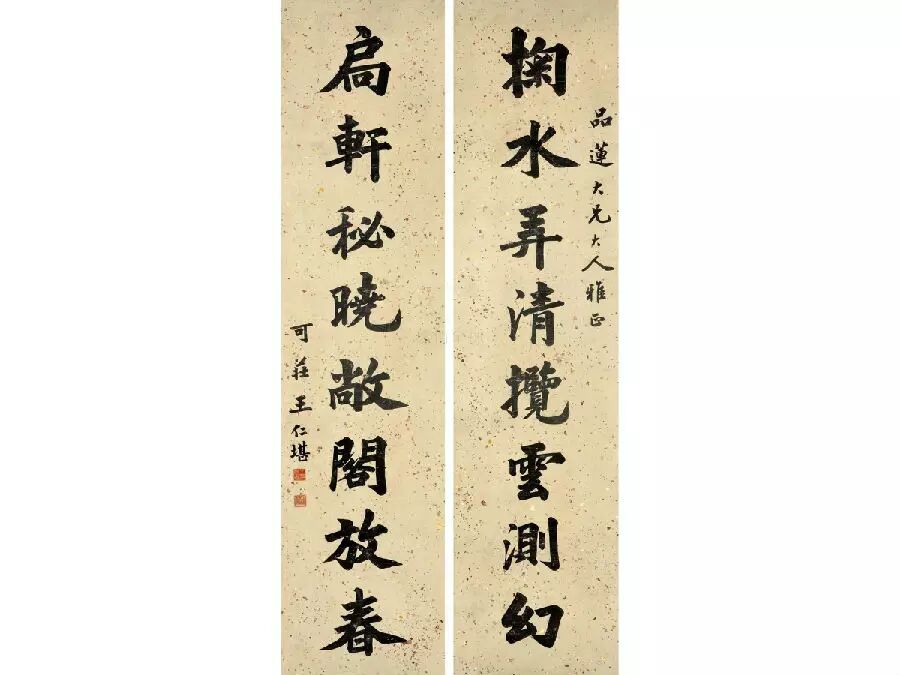 品蓮大兄大人雅正
掬水弄清攬雲測幻
扃軒秘曉敞閣放春
可莊王仁堪